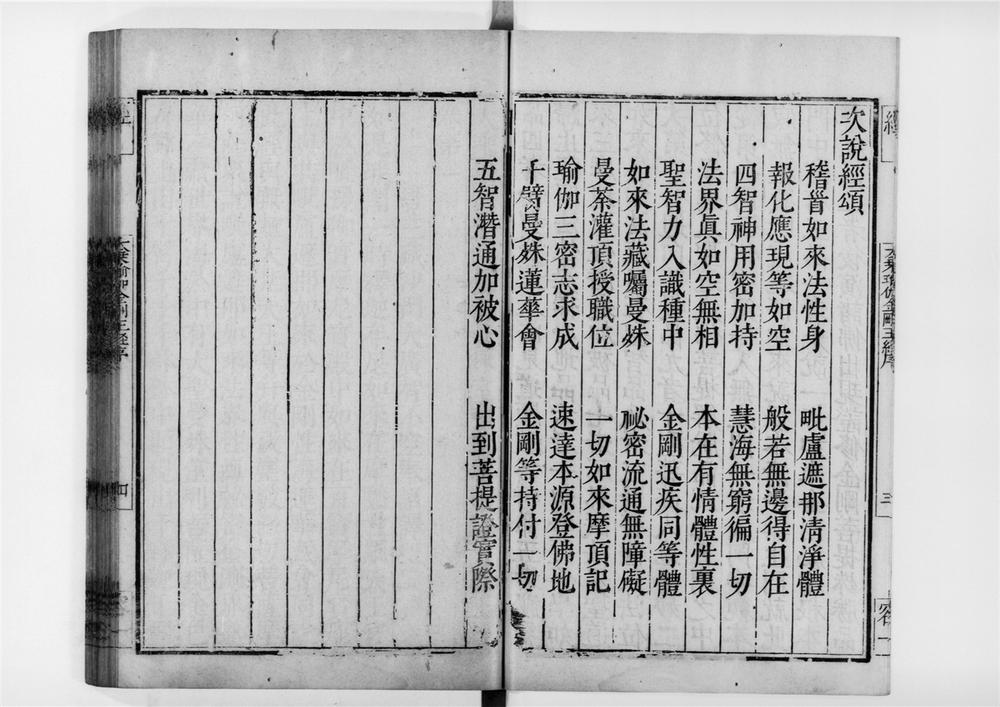 次說經頌
稽首如來法性身　毗盧遮那清淨體
報化應現等如空　般若無邊得自在
四智神用密加持　慧海無窮徧一切
法界眞如空無相　本在有情體性裏
聖智力入識種中　金剛迅疾同等體
如來法藏囑曼姝　祕密流通無障礙
曼荼灌頂授職位　一切如來摩頂記
瑜伽三密志求成　速達本源登佛地
千臂曼姝蓮華會　金剛等持付一切
五智潛通加被心　出到菩提證實際
大乘瑜伽金剛王經序
三
容一
大乘瑜伽金剛王經序
四